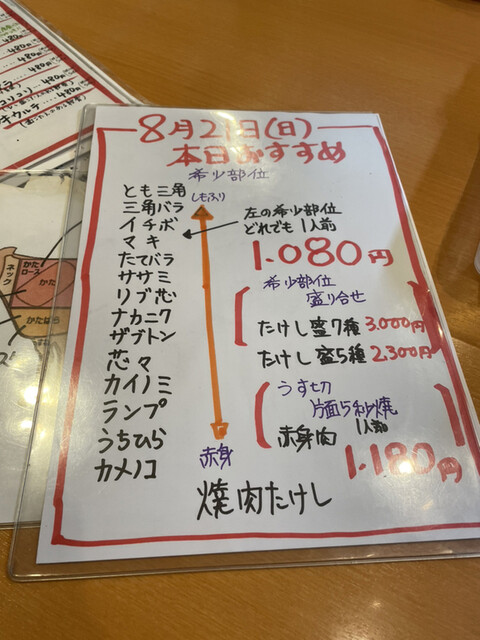 480
480
480
コリコリ・・480円
ウルテ・・・・480円
8月21日(日)
本日おすすめ
希少部位
とも三角
三角バラ
イチボ
マキ
たてバラ
ササミ
リブ芯
ナカニク
ザブトン
芯々
カイノミ
ランプ
うちひら
カメノコ
しもふり
赤身
左の希少部位
どれでも1人前
1.080円
希少部位
盛り合せ
たけし盛7種 3.000円
たけし盛5種 2.300円
うす切
片面5秒焼
1人前
赤身肉
1.180円
焼肉たけし
ネック
かた
ロース
かたばら